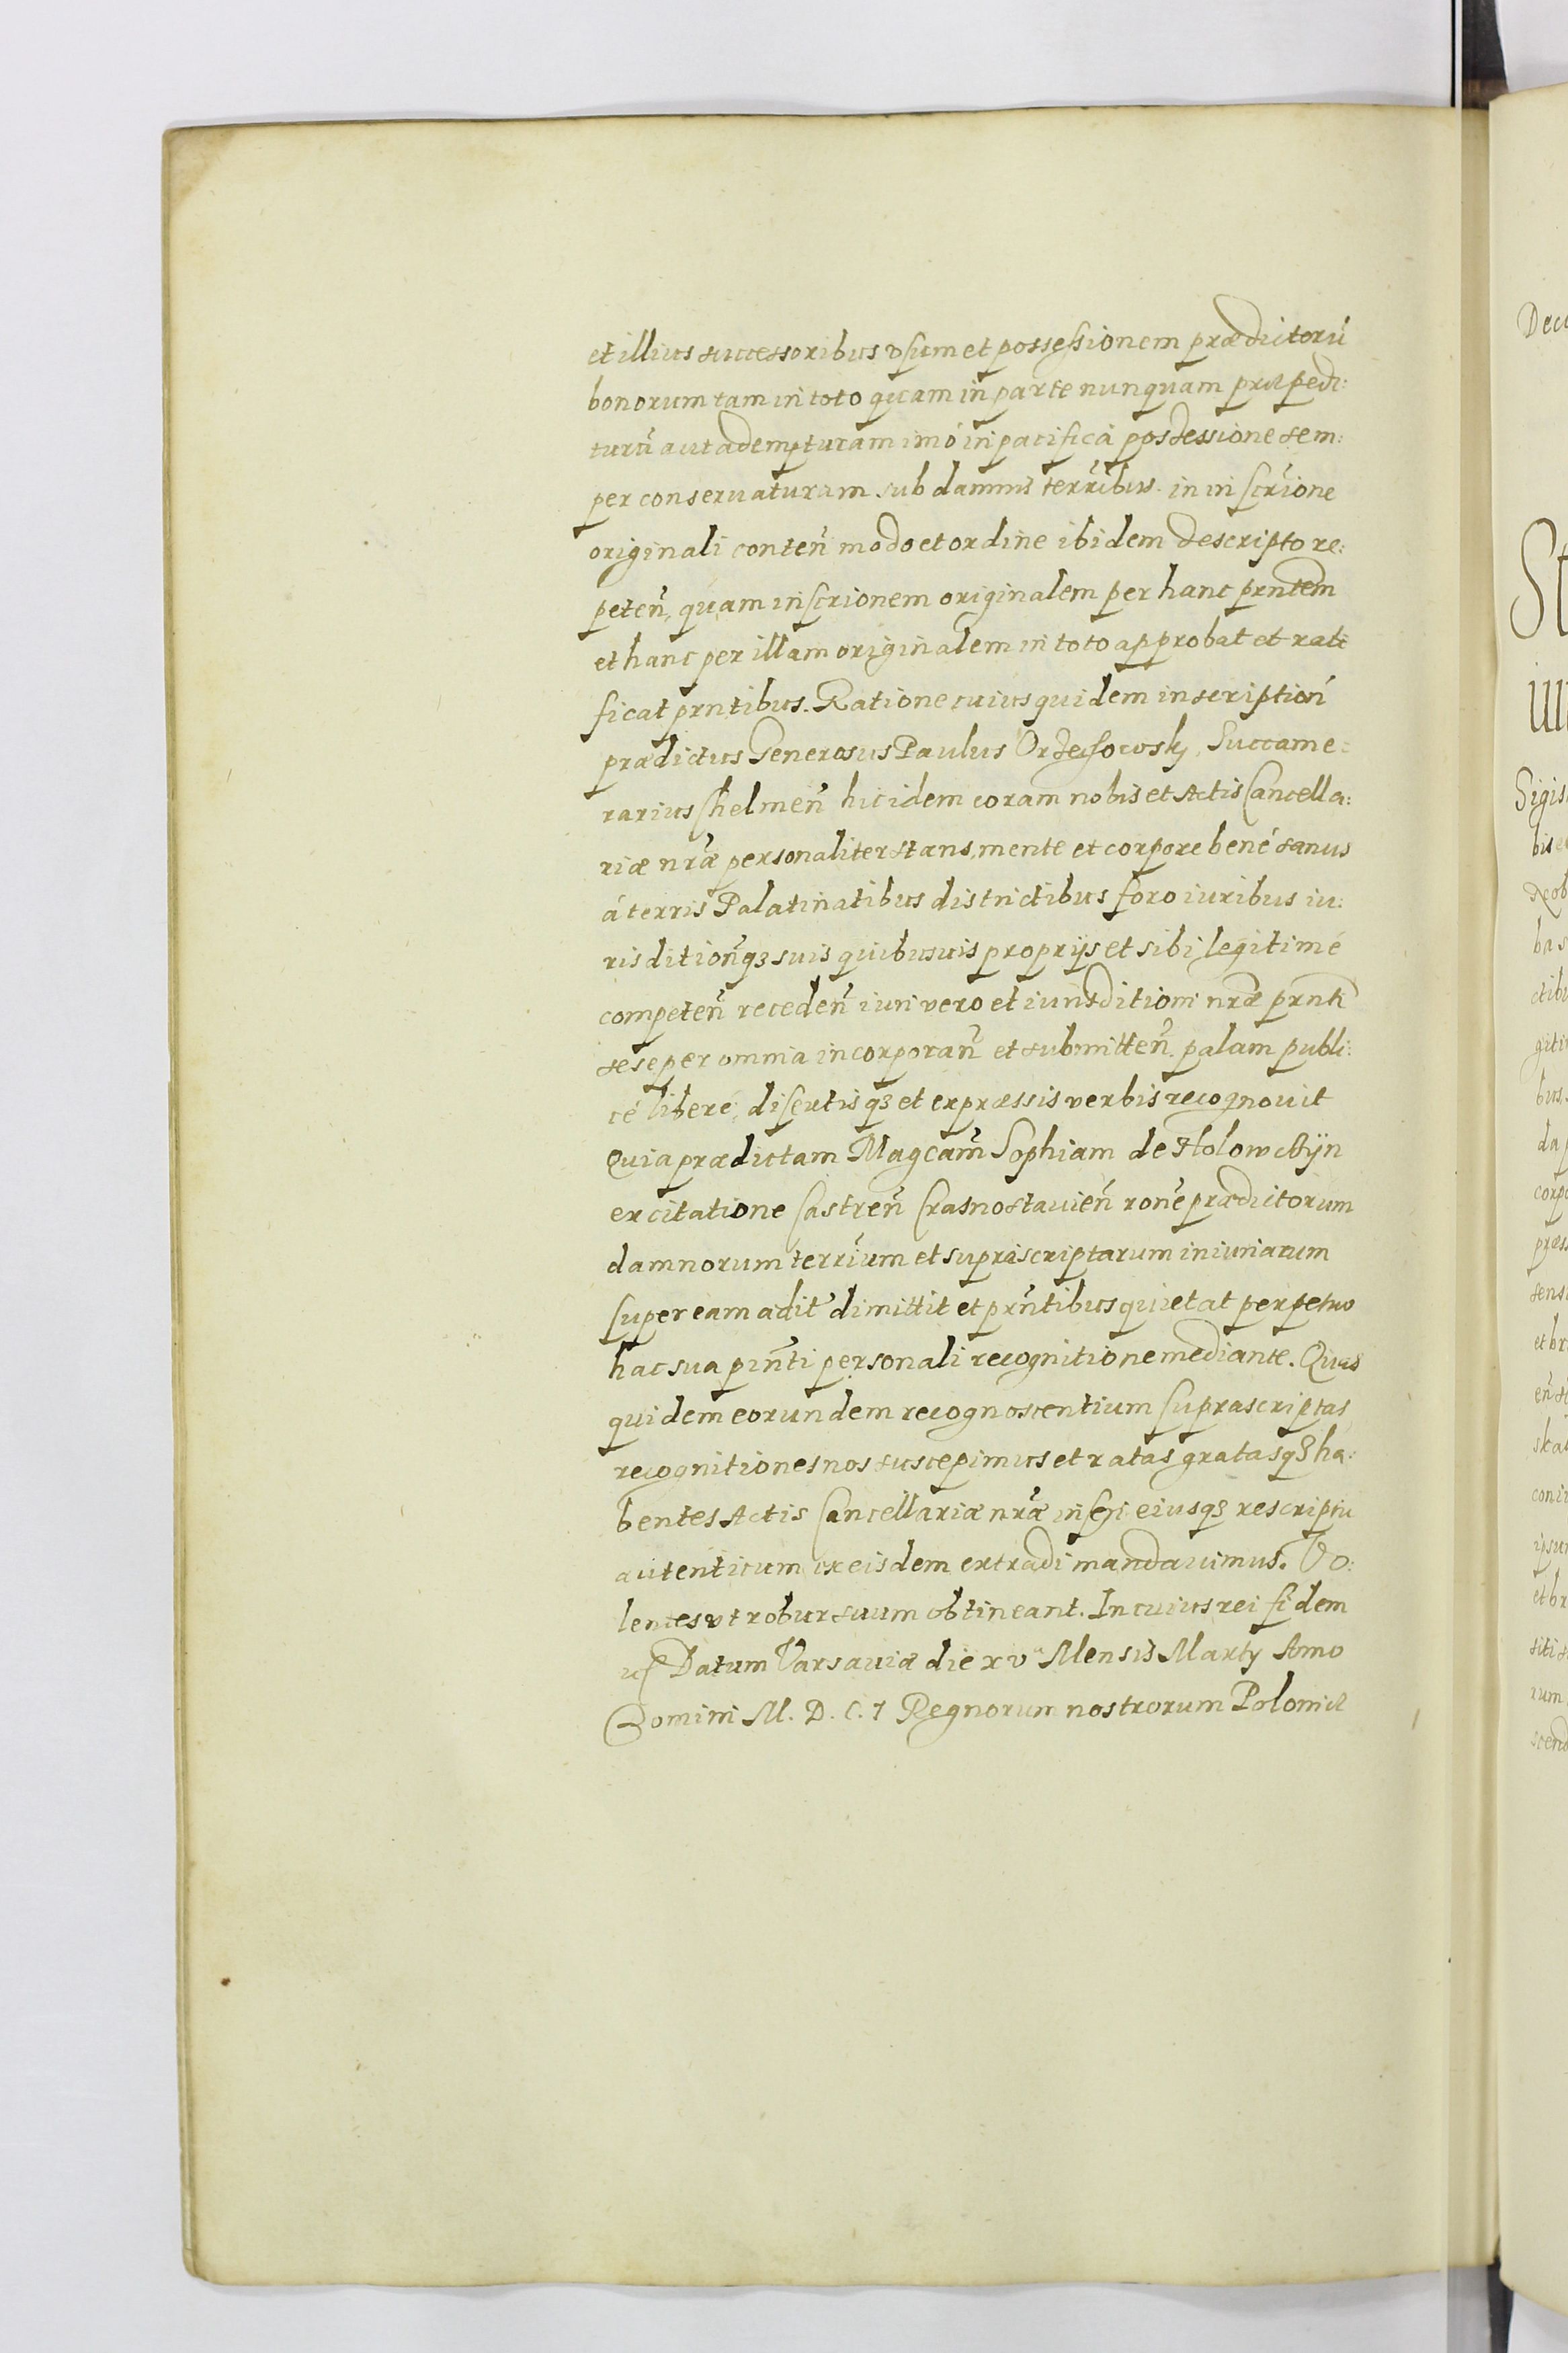 et illius successoribus vsum et possessionem prædictorũ
bonorum tam in toto quam in parte nunquam præpedi:
turũ aut adempturam imó in pacificá possessione sem:
per conseruaturam sub damnis terrĩbus in inscrĩone
originali conteñ modo et ordine ibidem descripto re:
peteñ, quam inscrionem originalem per hanc prntem
et hanc per illam originalem in toto approbat et rati
ficat prntibus. Ratione cuius quidem inscriptioñ
prædictus Generosus Paulus Succame:
rarius Chelmeñ hic idem coram nobis et Actis Cancella:
riæ nrã personaliter stans, mente et corpore bené sanus
á terris Palatinatibus districtibus foro iuribus iu:
risditioñq3 suis quibusuis proprijs et sibi legitimé
competeñ recedeñ iuri vero et iurisditioni nræ prñti
sese per omnia incorporañ et submitteñ palam publi:
cé liberé, disertisq3 et expræssis verbis recognouit
Quia prædictam Magcam̃ Sophiam de Holowczyn
ex citatione Castreñ Crasnostauieñ rone prædictorum
damnorum terrĩum et supráscriptarum iniuriarum
super eam adit dimittit et prñtibus quietat perpetuo
hac sua prñti personali recognitione mediante. Quas
quidem eorundem recognoscentium suprascriptas
recognitiones nos suscepimus et ratas gratasq3 ha:
bentes Actis Cancellariæ nrã inseri eiusq3 rescriptu
autenticum ex eisdem extradi mandauimus. Vo:
lentes vt robur suum obtineant. In cuius rei fidem
Datum Varsauiæ die xv Mensis Martij Anno
Domini M. D. C. 7 Regnorum nostrorum Poloniæ
Sigis